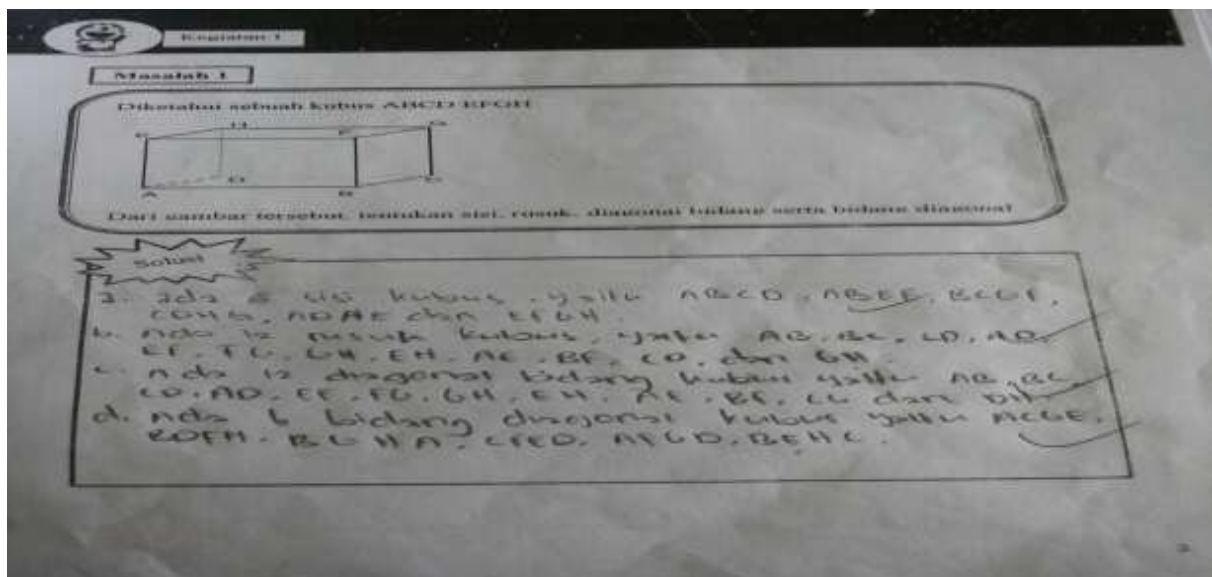 Kegiatan 1
Masalah 1
Diketahui sebuah kubus ABCD EFGH
H G
E F
D C
A B
Dari gambar tersebut, tentukan sisi, rusuk, diagonal bidang serta bidang diagonal
Solusi
a. ada 6 sisi kubus, yaitu ABCD, ABEF, BCGF,
CDHG, ADHE dan EFGH
b. Ada 12 rusuk kubus, yaitu AB, BC, CD, AD,
EF, FG, GH, EH, AE, BF, CD, dan GH
c. Ada 12 diagonal bidang kubus yaitu AB, BC,
CD, AD, EF, FG, GH, EH, AE, BF, CG dan DH
d. Ada 6 bidang diagonal kubus yaitu ACGE,
BDFH, BGHA, CFED, AFGD, BEHC.